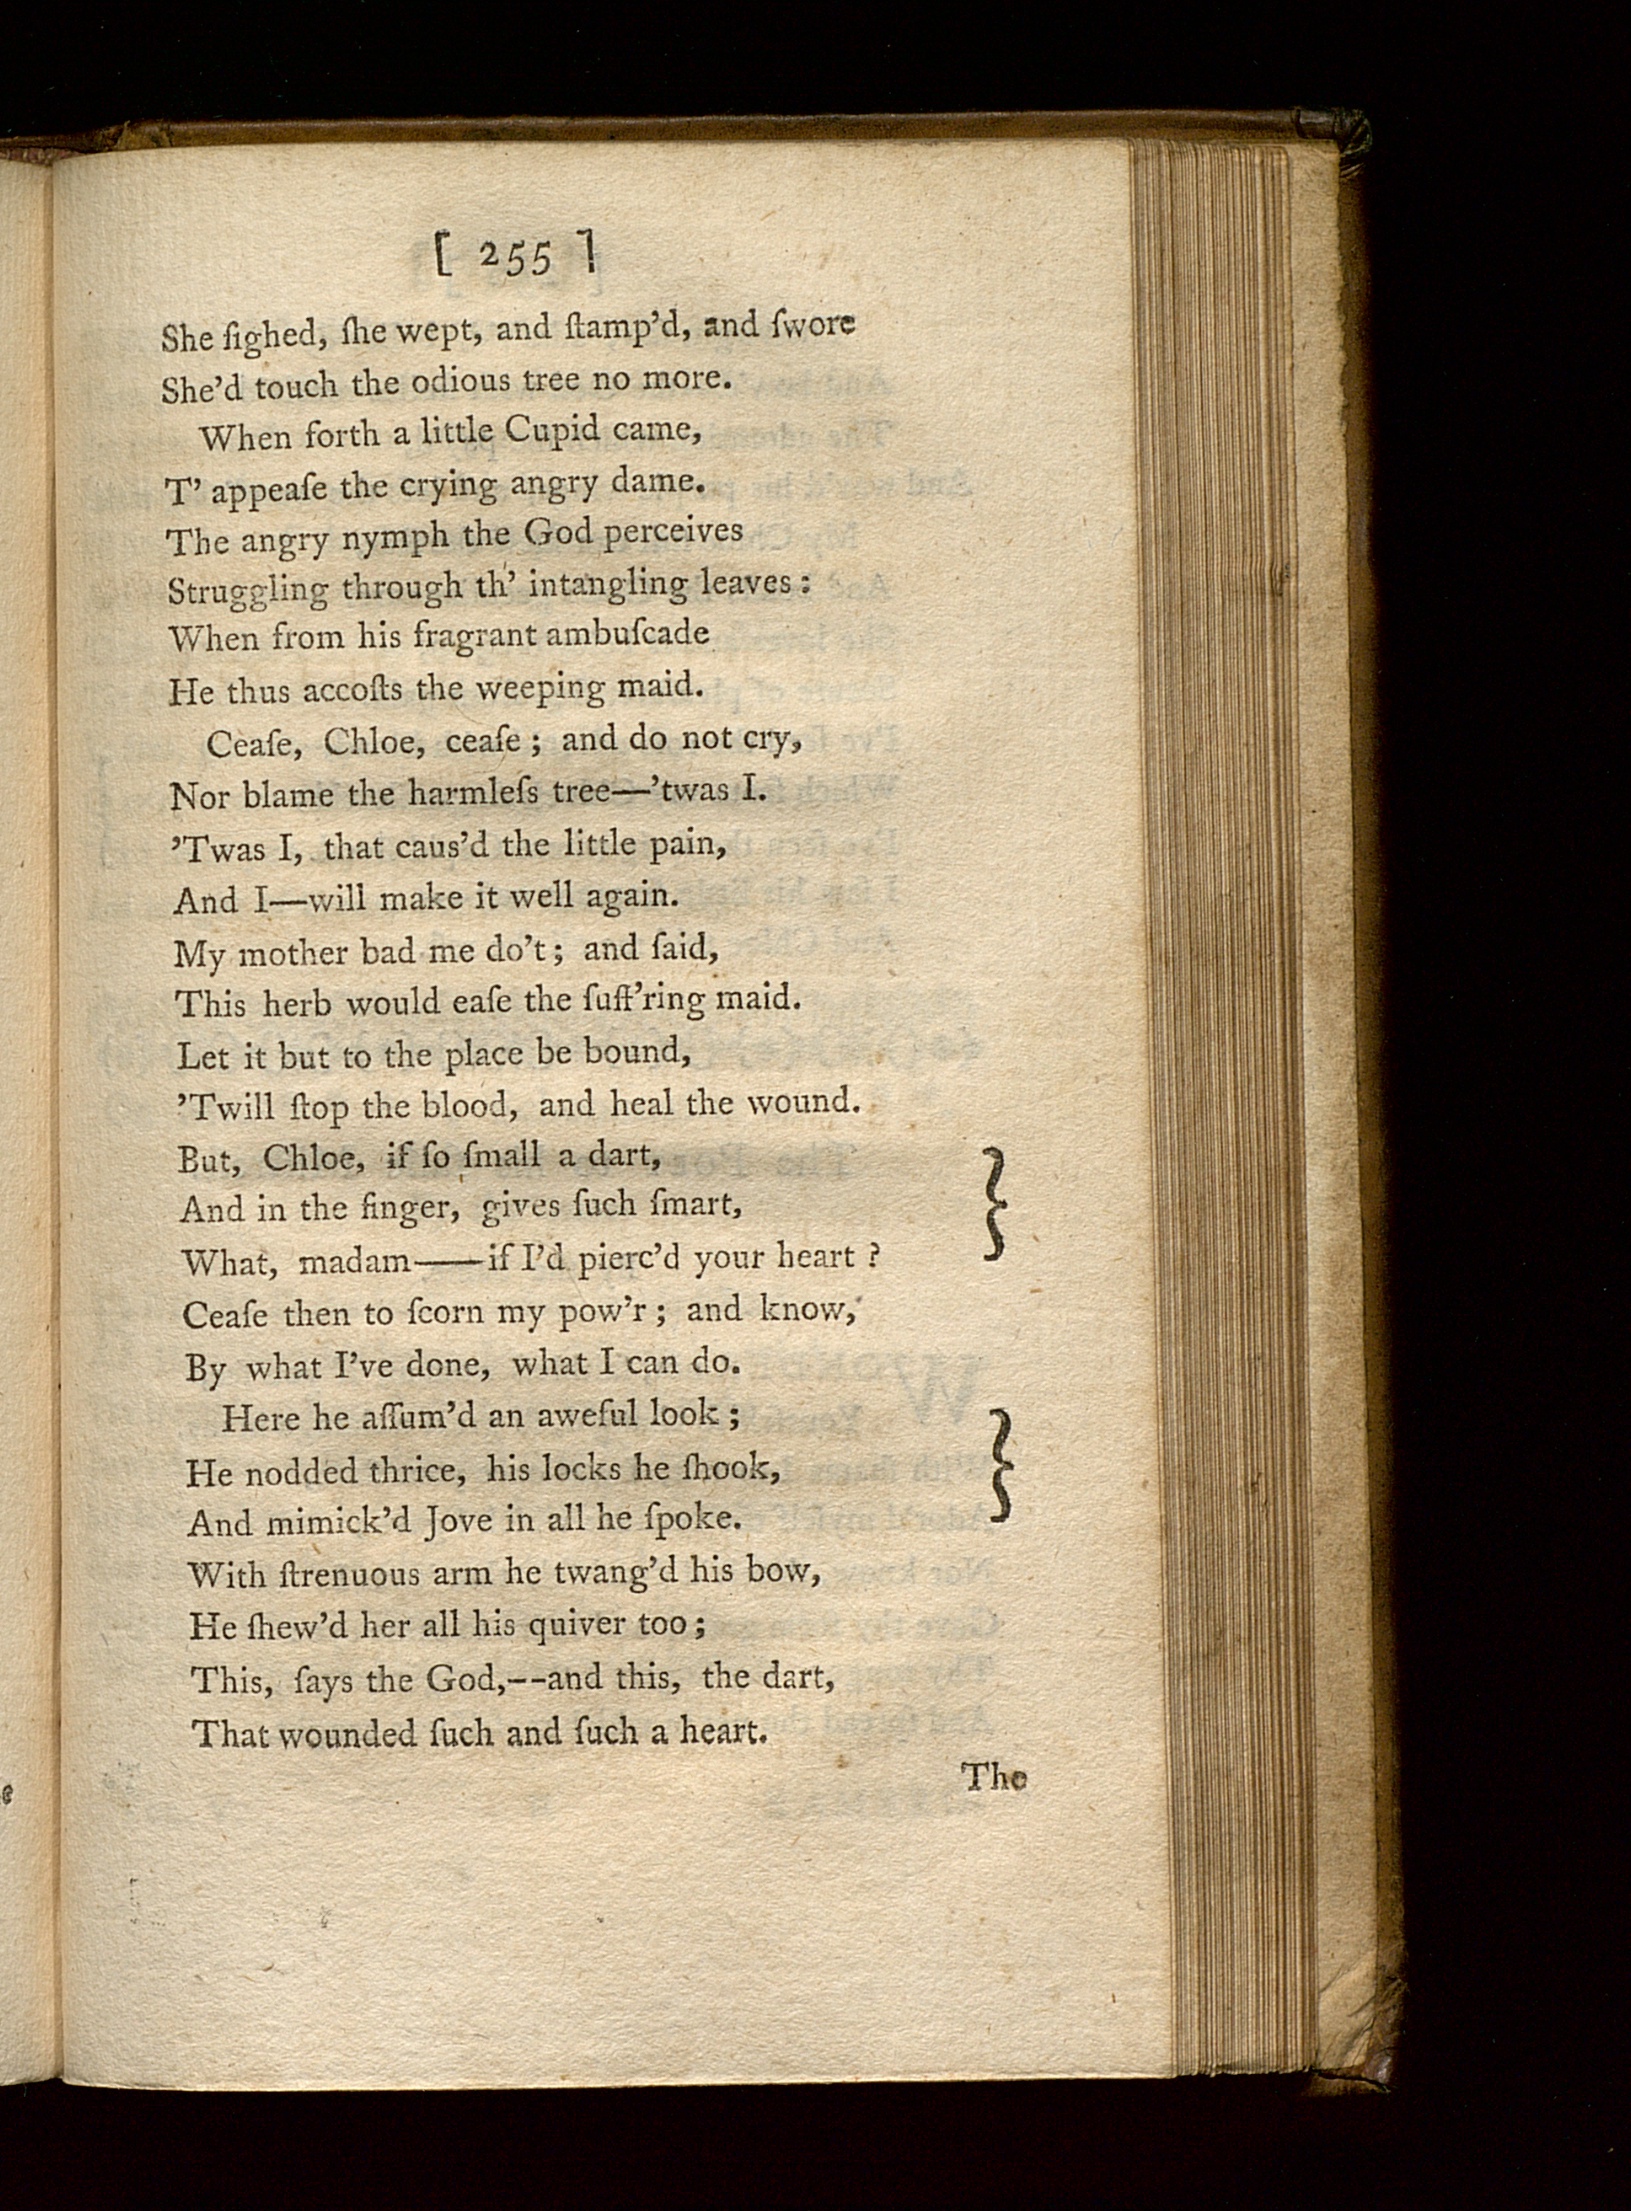 [ 255 ]
She ſighed, ſhe wept, and ſtamp’d, and ſwore
She’d touch the odious tree no more.
When forth a little Cupid came,
T’ appeaſe the crying angry dame.
The angry nymph the God perceives
Struggling through th’ intangling leaves:
When from his fragrant ambuſcade
He thus accoſts the weeping maid.
Ceaſe, Chloe, ceaſe; and do not cry,
Nor blame the harmleſs tree—’twas I.
’Twas I, that caus’d the little pain,
And I—will make it well again.
My mother bad me do’t; and ſaid,
This herb would eaſe the ſuff’ring maid.
Let it but to the place be bound,
’Twill ſtop the blood, and heal the wound.
But, Chloe, if ſo ſmall a dart,
And in the finger, gives ſuch ſmart,
What, madam——if I’d pierc’d your heart?
Ceaſe then to ſcorn my pow’r; and know,
By what I’ve done, what I can do.
Here he aſſum’d an aweful look;
He nodded thrice, his locks he ſhook,
And mimick’d Jove in all he ſpoke.
With ſtrenuous arm he twang’d his bow,
He ſhew’d her all his quiver too;
This, ſays the God,--and this, the dart,
That wounded ſuch and ſuch a heart.
The